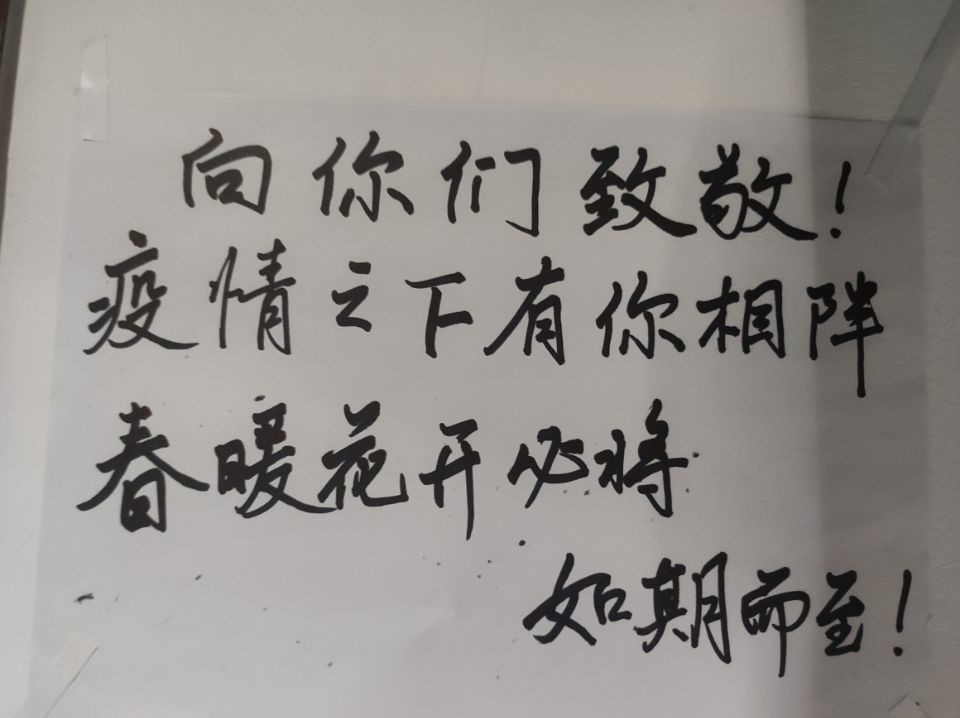 向你们致敬!
疫情之下有你相伴
春暖花开必将
如期而至!